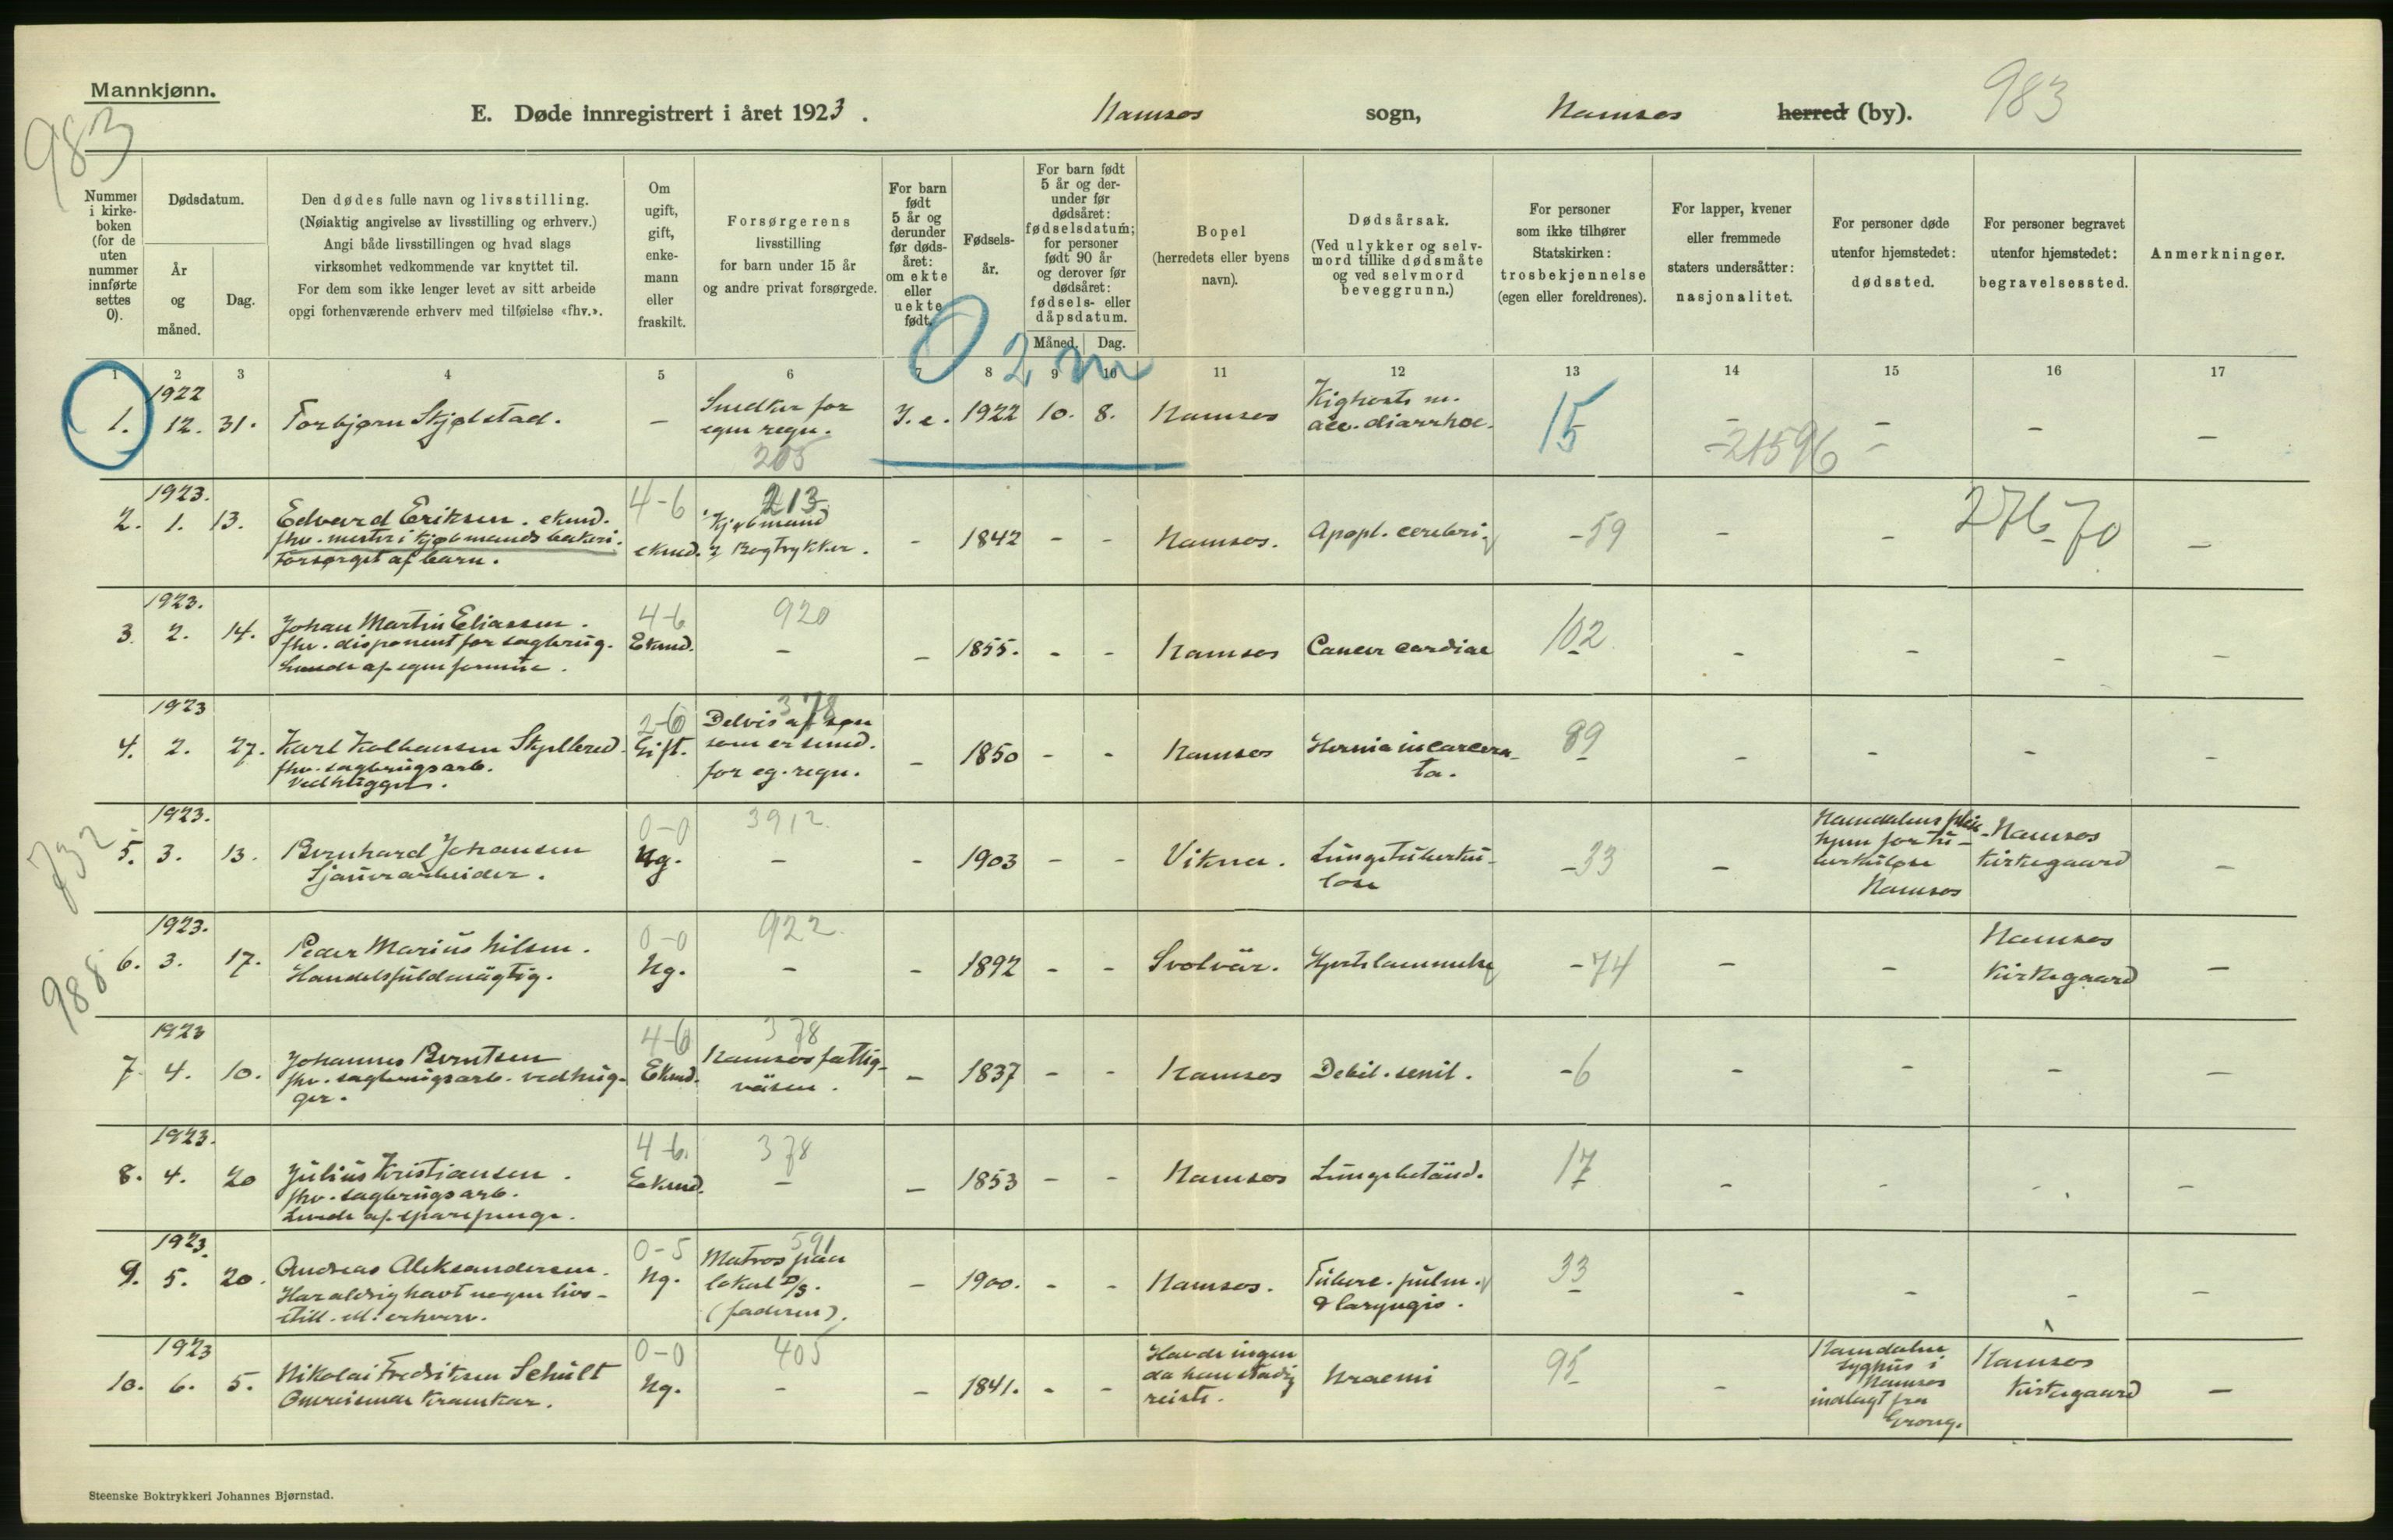 Mannkjønn.
E. Døde innregistrert i året 1923. Namsos sogn, Namsos herred (by). 983
983
Nummer i kirkeboken (for de uten nummer innførte settes 0).
Dødsdatum.
År og måned.
Dag.
Den dødes fulle navn og livsstilling.
(Nøiaktig angivelse av livsstilling og erhverv.)
Angi både livsstillingen og hvad slags
virksomhet vedkommende var knyttet til.
For dem som ikke lenger levet av sitt arbeide
opgi forhenværende erhverv med tilføielse «fhv.».
Om ugift, gift, enkemann eller fraskilt.
Forsørgerens
livsstilling
for barn under 15 år
og andre privat forsørgede.
For barn født 5 år og derunder før dødsåret: om ekte eller uekte født.
Fødselsår.
For barn født 5 år og derunder før dødsåret: fødselsdatum; for personer født 90 år og derover før dødsåret: fødsels- eller dåpsdatum.
Måned. Dag.
Bopel
(herredets eller byens
navn).
Dødsårsak.
(Ved ulykker og selvmord tillike dødsmåte og ved selvmord beveggrunn.)
For personer
som ikke tilhører
Statskirken:
trosbekjennelse
(egen eller foreldrenes).
For lapper, kvener
eller fremmede
staters undersåtter:
nasjonalitet.
For personer døde
utenfor hjemstedet:
dødssted.
For personer begravet
utenfor hjemstedet:
begravelsessted.
Anmerkninger.
0 2 m
1 2 3 4 5 6 7 8 9 10 11 12 13 14 15 16 17
1922
1. 12. 31. Torbjørn Skjølstad. – Snedker for
egen regn.
205
I. e. 1922 10. 8. Namsos Kighoste m.
acc. diarrhoe.
15 – 21596 – – –
1923.
2. 1. 13. Edvard Eriksen. ekmd.
fhv. mester i kjøbmands bakeri.
Forsørget af barn.
4-6
ekmd.
213
1 Kjøbmand
2 Bogtrykker.
– 1842 – – Namsos. Apopl. cerebri. –59 – – 276-70 –
1923.
3. 2. 14. Johan Martin Eliassen.
fhv. disponent for sagbrug.
Levede af egen formue.
4-6
Ekmd.
920
– – 1855. – – Namsos Cancer cardiae 102 – – – –
1923
4. 2. 27. Karl Kolbansen Skjellered.
fhv. sagbrugsarb.
Vedhugger.
2-6
Gift.
378
Delvis af søn
som er smed.
for eg. regn.
– 1850 – – Namsos Hernia incarcera-
ta.
89 – – – –
1923.
732 5. 3. 13. Bernhard Johansen
Sjauerarbeider.
0-0
Ug.
3912.
– – 1903 – – Vikna. Lungetuberku-
lose
–33 – Namdalens pleie-
hjem for tu-
berkuløse
Namsos
Namsos
Kirkegaard
–
1923.
988. 6. 3. 17. Peder Marius Nilsen.
Handelsfuldmægtig.
0-0
Ug.
922.
– – 1892 – – Svolvär. Hjertelammelse –74 – – Namsos
Kirkegaard
–
1923
7. 4. 10. Johannes Berntsen
fhv. sagbrugsarb. vedhug-
ger.
4-6
Ekmd.
378
Namsos fattig-
väsen.
– 1837 – – Namsos Debil. senil. –6 – – – –
1923.
8. 4. 20 Julius Kristiansen.
fhv. sagbrugsarb.
Levede af sparepenge.
4-6.
Ekmd.
378
– – 1853 – – Namsos Lungebetänd. 17 – – – –
1923.
9. 5. 20. Andreas Aleksandersen.
Har aldrig havt nogen livs-
still. ell. erhverv.
0-5
Ug.
591
Matros paa
lokal D/S.
(faderen).
– 1900. – – Namsos. Tuberc. pulm.
& laryngis.
33 – – – –
1923
10. 6. 5. Nikolai Fredriksen Schult
Omreisende Kramkar.
0-0
Ug.
405
– – 1841. – – Havde ingen
da han stadig
reiste.
Uraemi 95 – Namdalens
sygehus i
Namsos
indlagt fra
Grong.
Namsos
Kirkegaard
–
Steenske Boktrykkeri Johannes Bjørnstad.